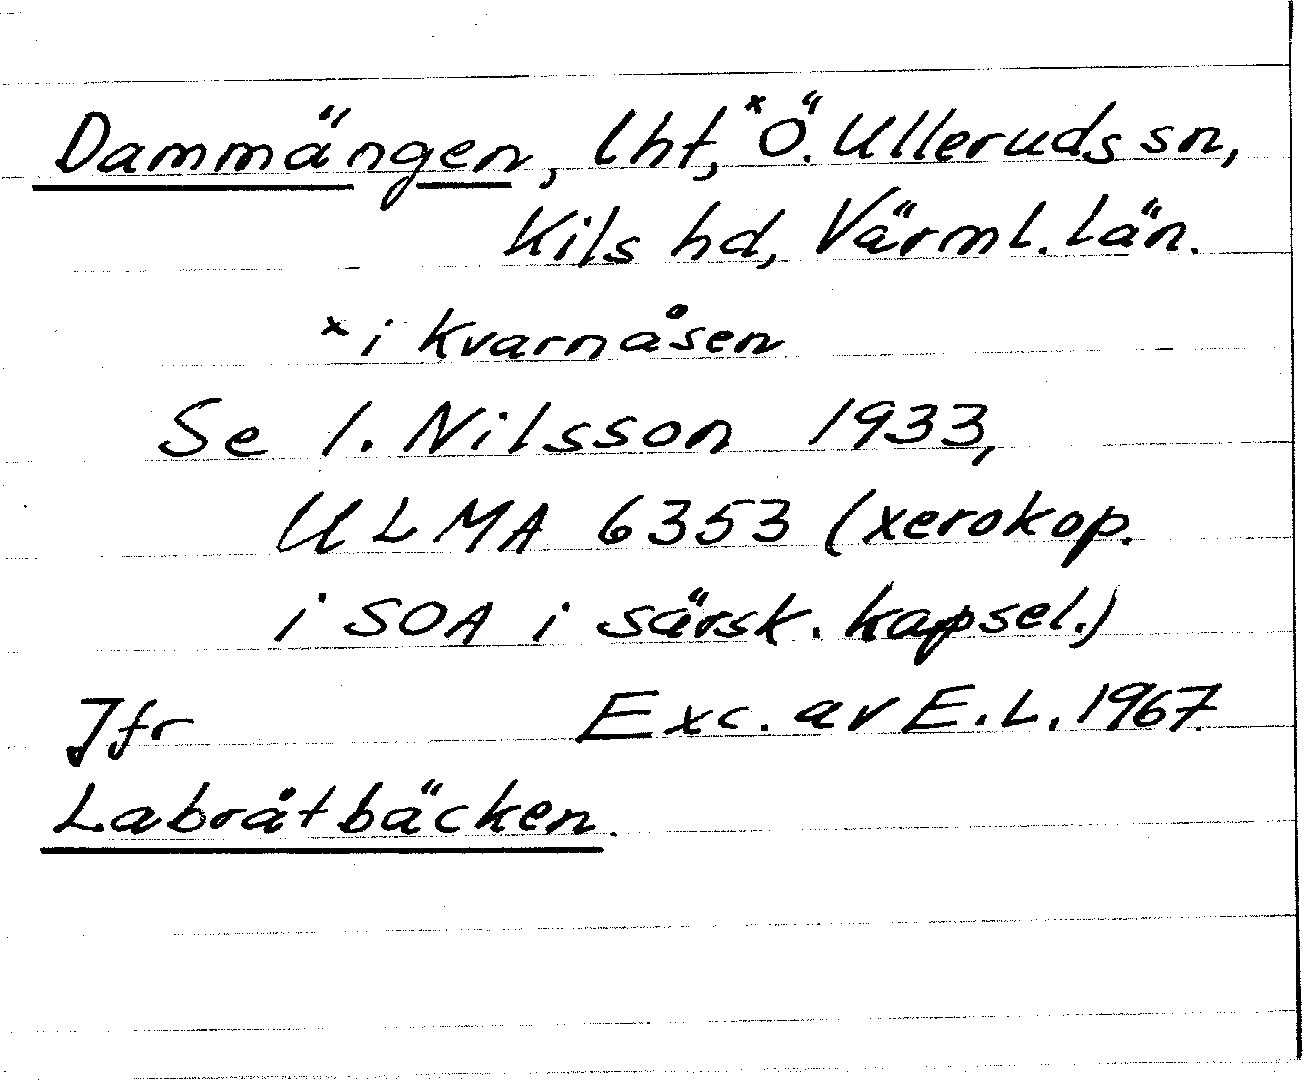 Dammängen, lht, ˣÖ. Ullerudssn,
Kils hd, Värml. län.
ˣi Kvarnåsen
Se I. Nilsson 1933,
ULMA 6353 (xerokop.
i SOA i särsk. kapsel.)
Jfr Exc. av E.L. 1967.
Labråtbäcken.